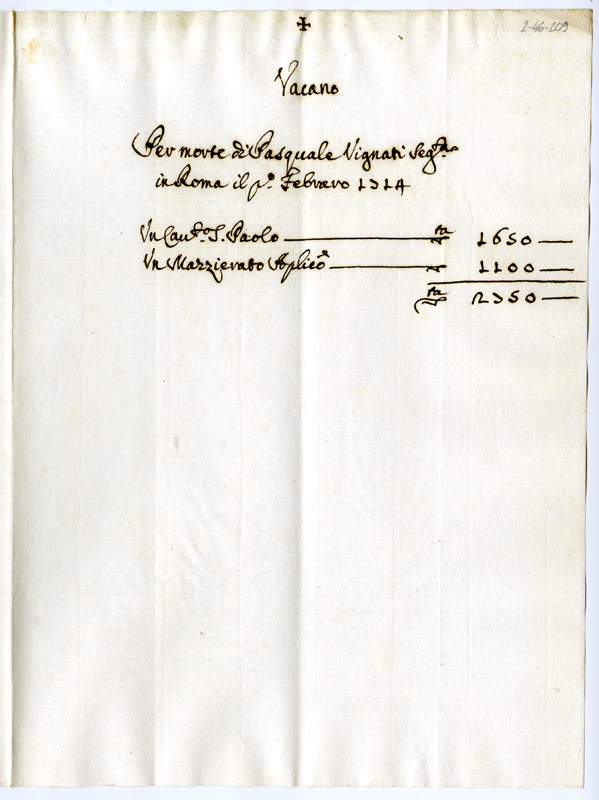 ✠
2-46-209
Vacano
Per morte di Pasquale Vignati seg.ta
in Roma il p.º Febraro 1714
Vn Cau.to S. Paolo 1650
Vn Mazzierato Aplicõ 1100
2750